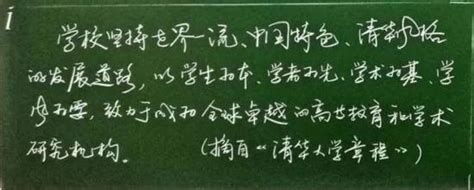 学校坚持世界一流、中国特色、清华风格
的发展道路，以学生为本、学者为先、学术为基、学
风为要，致力于成为全球卓越的高等教育和学术
研究机构。 （摘自《清华大学章程》）